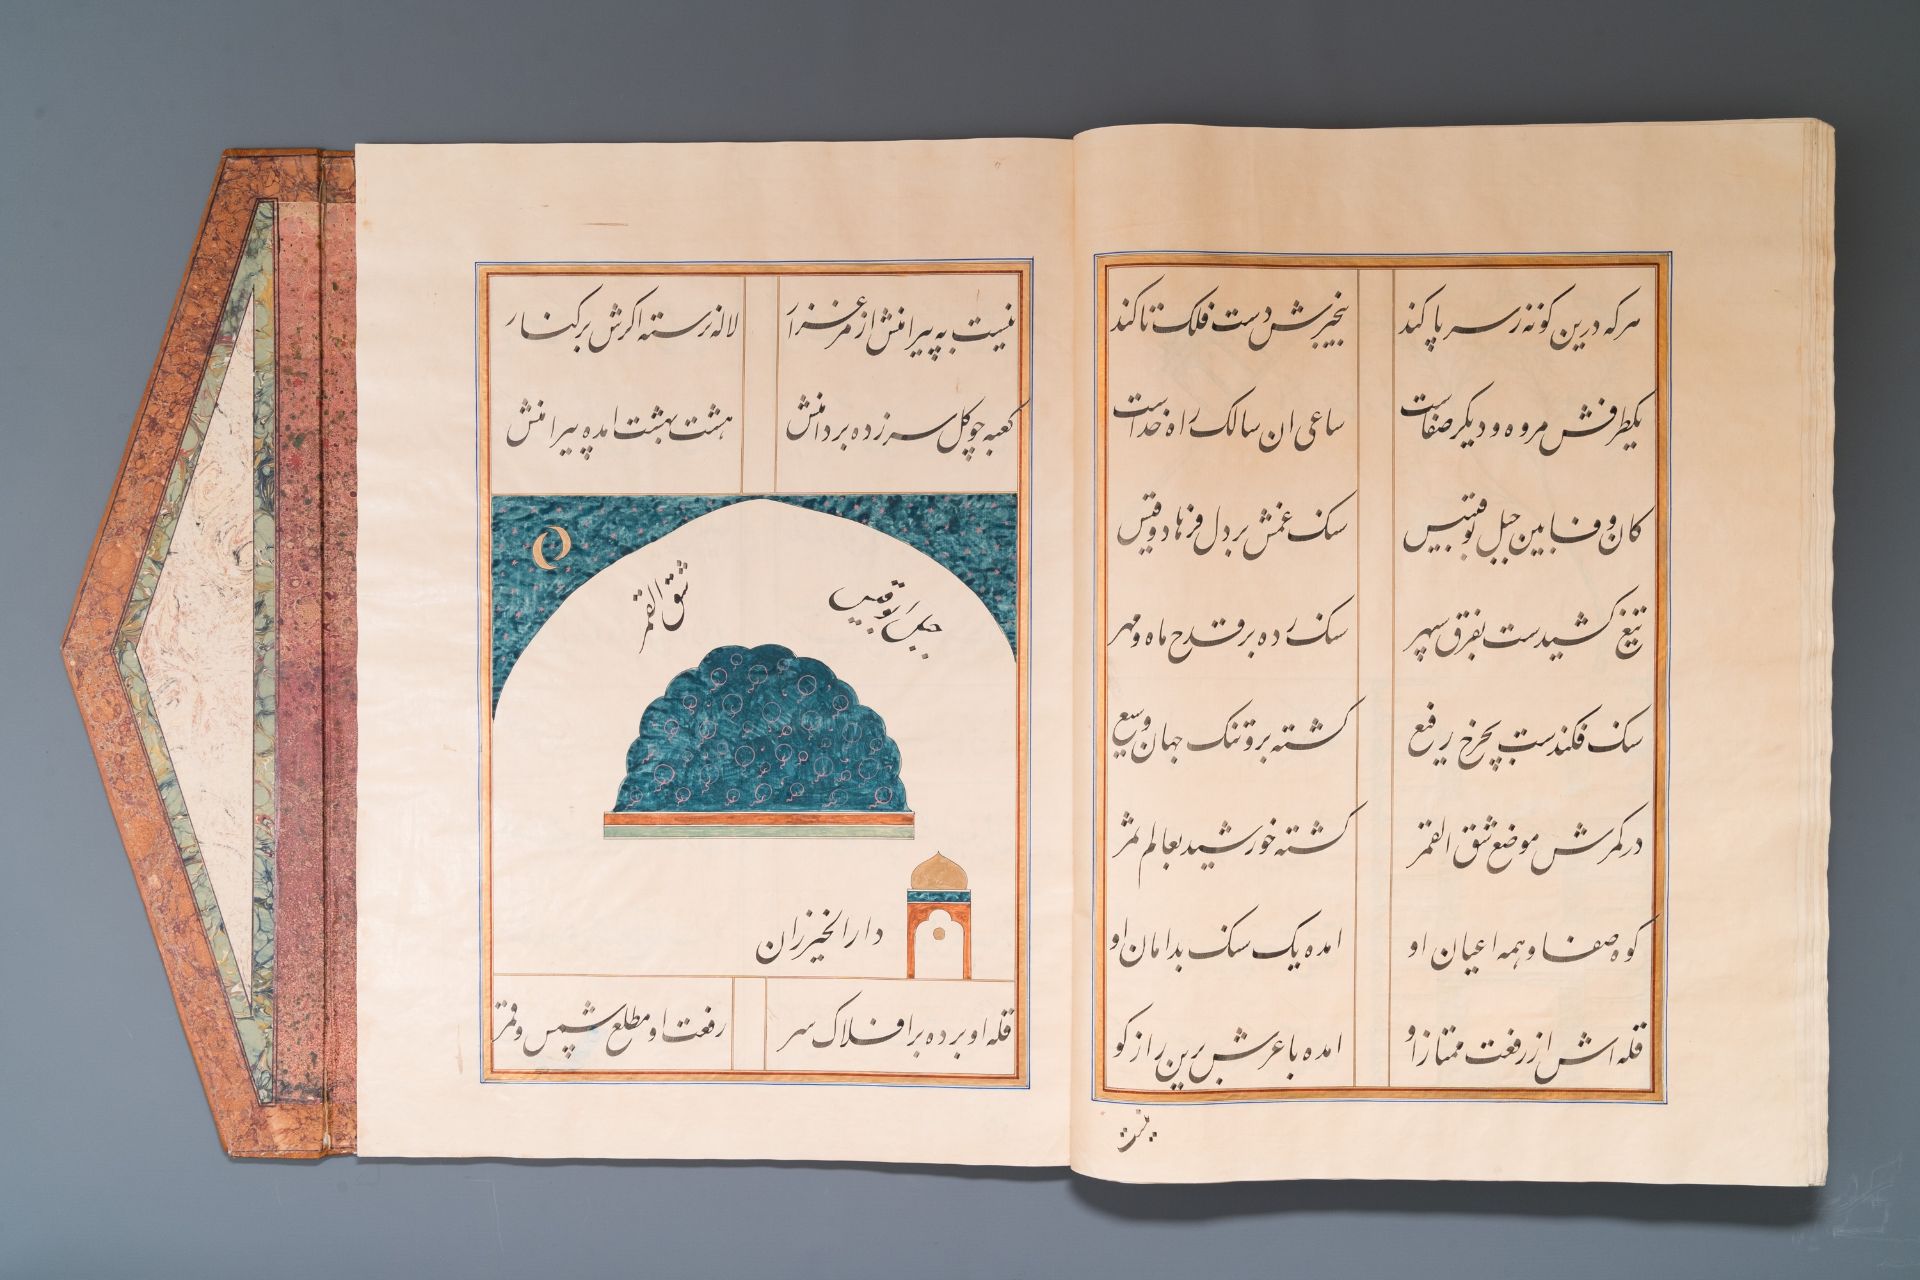 هرکه درین کونه ز سر پا کند بیخبرش دست فلک تا کند
یکطرفش مروه و دیکر صفاست ساعی ان سالک راه خداست
کان وفا بین جبل بوقبیس سنک غمش بر دل فرهاد و قیس
تیغ کشیدست بفرق سپهر سنک زده بر قدح ماه و مهر
سنک فکندست بچرخ رفیع کشته برو تنک جهان وسیع
در کمرش موضع شق القمر کشته خورشید بعالم ثمر
کوه صفا و همه اعیان او امده یک سنک بدامان او
قله اش از رفعت ممتاز او امده با عرش برین راز کو
نیست
نیست به پیرامنش از مرغزار لاله نرسته اکرش بر کنار
کعبه چو کل سر زده بر دامنش هشت بهشت امده پیرامنش
جبل ابوقبیس
شق القمر
دار الخیزران
قله او برده بر افلاک سر رفعت او مطلع شمس و قمر